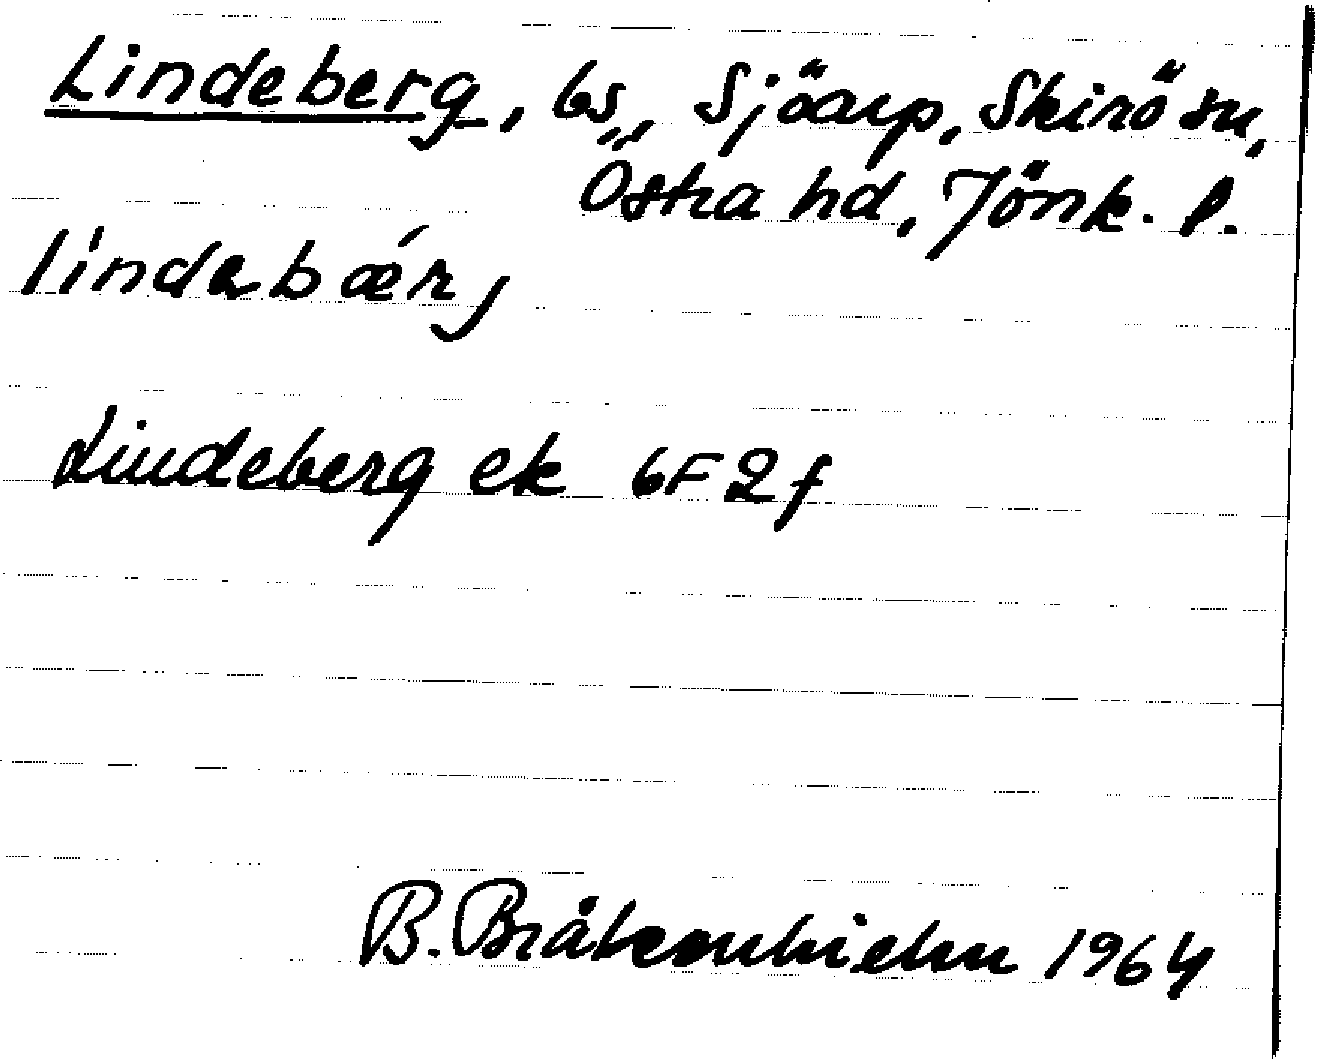 Lindeberg, bs, Sjöarp, Skirö sn,
Östra hd, Jönk. l.
lindabǽrj
Lindeberg ek 6F2f
B. Bråkenhielm 1964